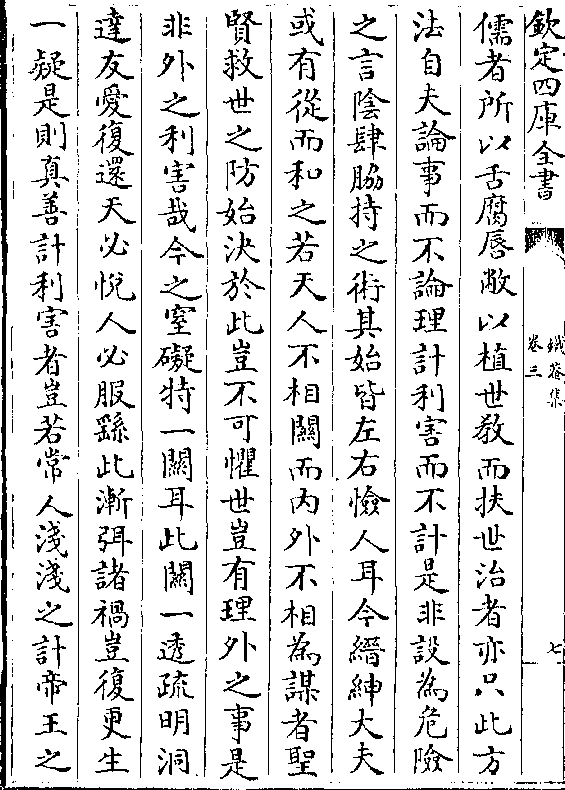 欽定四庫全書
鐵菴集
卷三
七
儒者所以舌腐唇敝以植世教而扶世治者亦只此方
法自夫論事而不論理計利害而不計是非設為危險
之言陰肆脇持之術其始皆左右憸人耳今縉紳大夫
或有從而和之若天人不相關而内外不相為謀者聖
賢救世之防始決於此豈不可懼世豈有理外之事是
非外之利害哉今之窒礙特一關耳此關一透疏明洞
達友愛復還天必悦人必服繇此漸弭諸禍豈復更生
一疑是則真善計利害者豈若常人淺淺之計帝王之